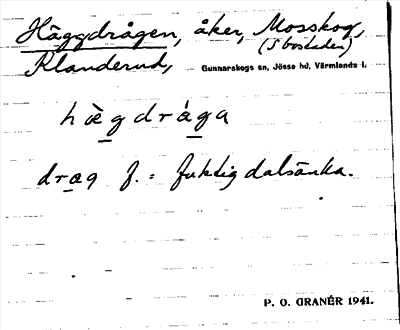 Häggdrågen, åker, Mosskog,
(S bostaden)
Klanderud, Gunnarskogs sn, Jösse hd, Värmlands l.
hæ̀gdrága
drag f. = fuktig dalsänka.
P. O. GRANÉR 1941.